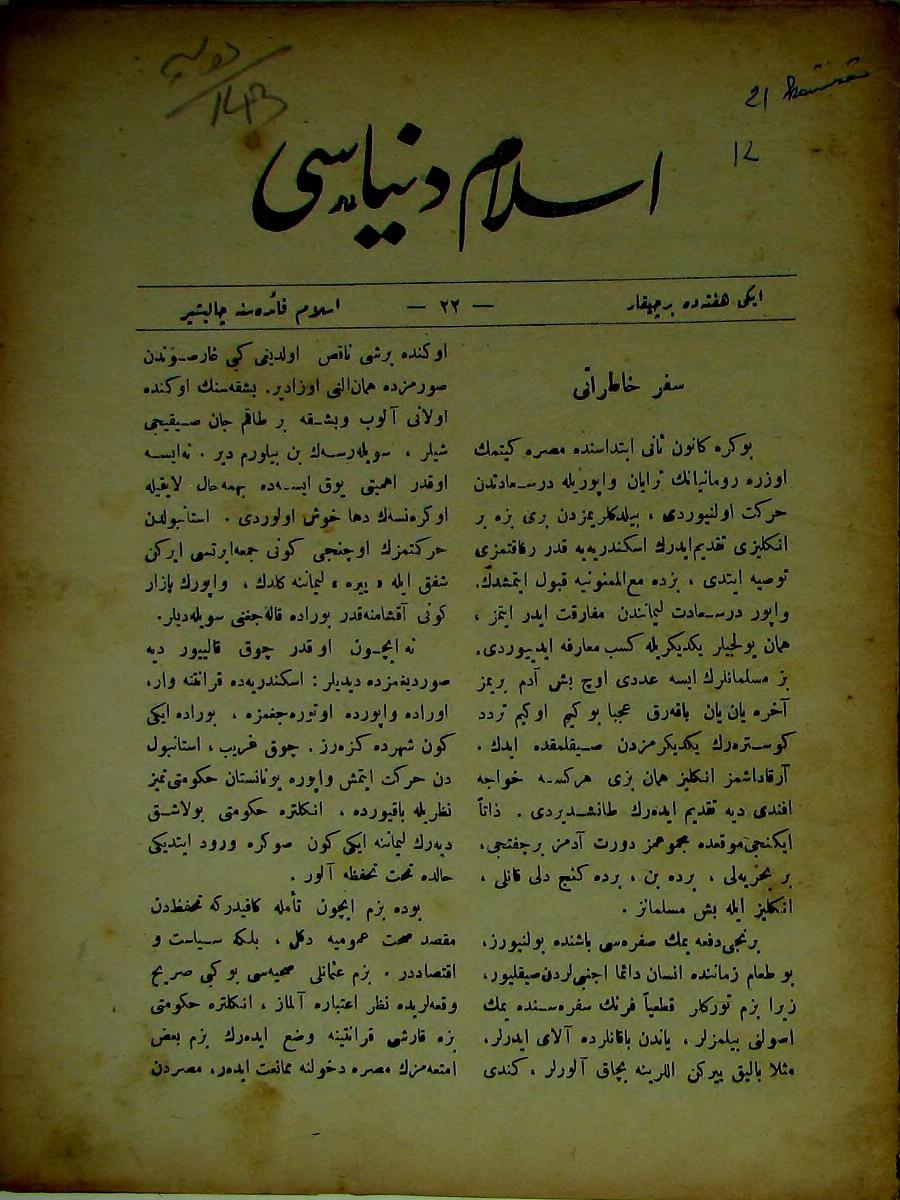 اسلام دنیاسی
ایکی هفته‌ده بر چیقار
— ۲۲ —
اسلام فائده‌سنه چالیشیر
سفر خاطراتی
بوکره کانون ثانی ابتداسنده مصره کیتمك
اوزره رومانیانك ترایان واپوریله درسـعادتدن
حرکت اولنیوردی ، بیلدکلریمزدن بری بزه بر
انکلیزی تقدیم‌ایدرك اسکندریه‌یه قدر رفاقتمزی
توصیه ایتدی ، بزده مع‌الممنونیه قبول ایتمشدك.
واپور درسـعادت لیمانندن مفارقت ایدر ایتمز ،
همان یولجیلر یکدیکریله کسب معارفه ایدییوردی.
بز مسلمانلرك ایسه عددی اوچ بش آدم بریمز
آخره یان یان باقه‌رق عجبا بو کیم اوکیم تردد
کوستره‌رك یکدیکرمزدن صـیقلمقده ایدك .
آرقاداشمز انکلیز همان بزی هرکسـه خواجه
افندی دیه تقدیم ایده‌رك طانشـدیردی . ذاتاً
ایکنجی‌موقعده مجموعمز دورت آدمز بر چفتجی،
بر بحریه‌لی ، برده بن ، برده کنج دلی قانلی ،
انکلیز ایله بش مسلمانز .
برنجی‌دفعه یمك صفره‌سی باشنده بولنیورز،
بو طعام زماننده انسان دائما اجنبی‌لردن‌صیقلیور،
زیرا بزم تورکلر قطعیاً فرنك سفره‌سـنده یمك
اصولنی بیلمزلر ، یاندن باقانلرده آلای ایدرلر،
مثلا بالیق ییرکن اللرینه بچاق آلورلر ، کندی
اوکنده برشی ناقص اولدینی کبی غارصـوندن
صورمزده همان‌النی اوزادیر. بشقه‌سنك اوکنده
اولانی آلوب وبشـقه بر طاقم جان صـیقیجی
شیلر ، سویله‌رسـه‌ك بن بیلورم دیر . نه‌ایسـه
اوقدر اهمیتی یوق ایسـه‌ده بهمه‌حال لایقیله
اوکره‌نسه‌ك دها خوش اولوردی . استانبولدن
حرکتمزك اوچنجی کونی جمعه‌ایرتسی ایرکن
شفق ایله « پیره » لیماننه کلدك ، واپورك بازار
کونی آقشامنه‌قدر بوراده قاله‌جغنی سویله‌دیلر.
نه ایچـون او قدر چوق قالییور دیه
صوردیغمزده دیدیلر : اسکندریه‌ده قرانتنه وار،
اوراده واپورده اوتوره‌جغمزه ، بوراده ایکی
کون شهرده کزه‌رز . چوق غریب ، استانبول
دن حرکت ایتمش واپوره یونانستان حکومتی‌تمیز
نظریله باقیورده ، انکلتره حکومتی بولاشـق
دیه‌رك لیماننه ایکی کون صوکره ورود ایتدیکی
حالده تحت تحفظه آلور .
بوده بزم ایچون تأمله کافیدرکه تحفظدن
مقصد صحت عمومیه دکل ، بلکه سـیاست و
اقتصاددر . بزم عثمانلی صحیه‌سی بو کبی صریح
وقعه‌لریده نظر اعتباره آلماز ، انکلتره حکومتی
بزه قارشی قرانتینه وضع ایده‌رك بزم بعض
امتعه‌مزك مصره دخولنه ممانعت ایده‌ر، مصردن
21
12